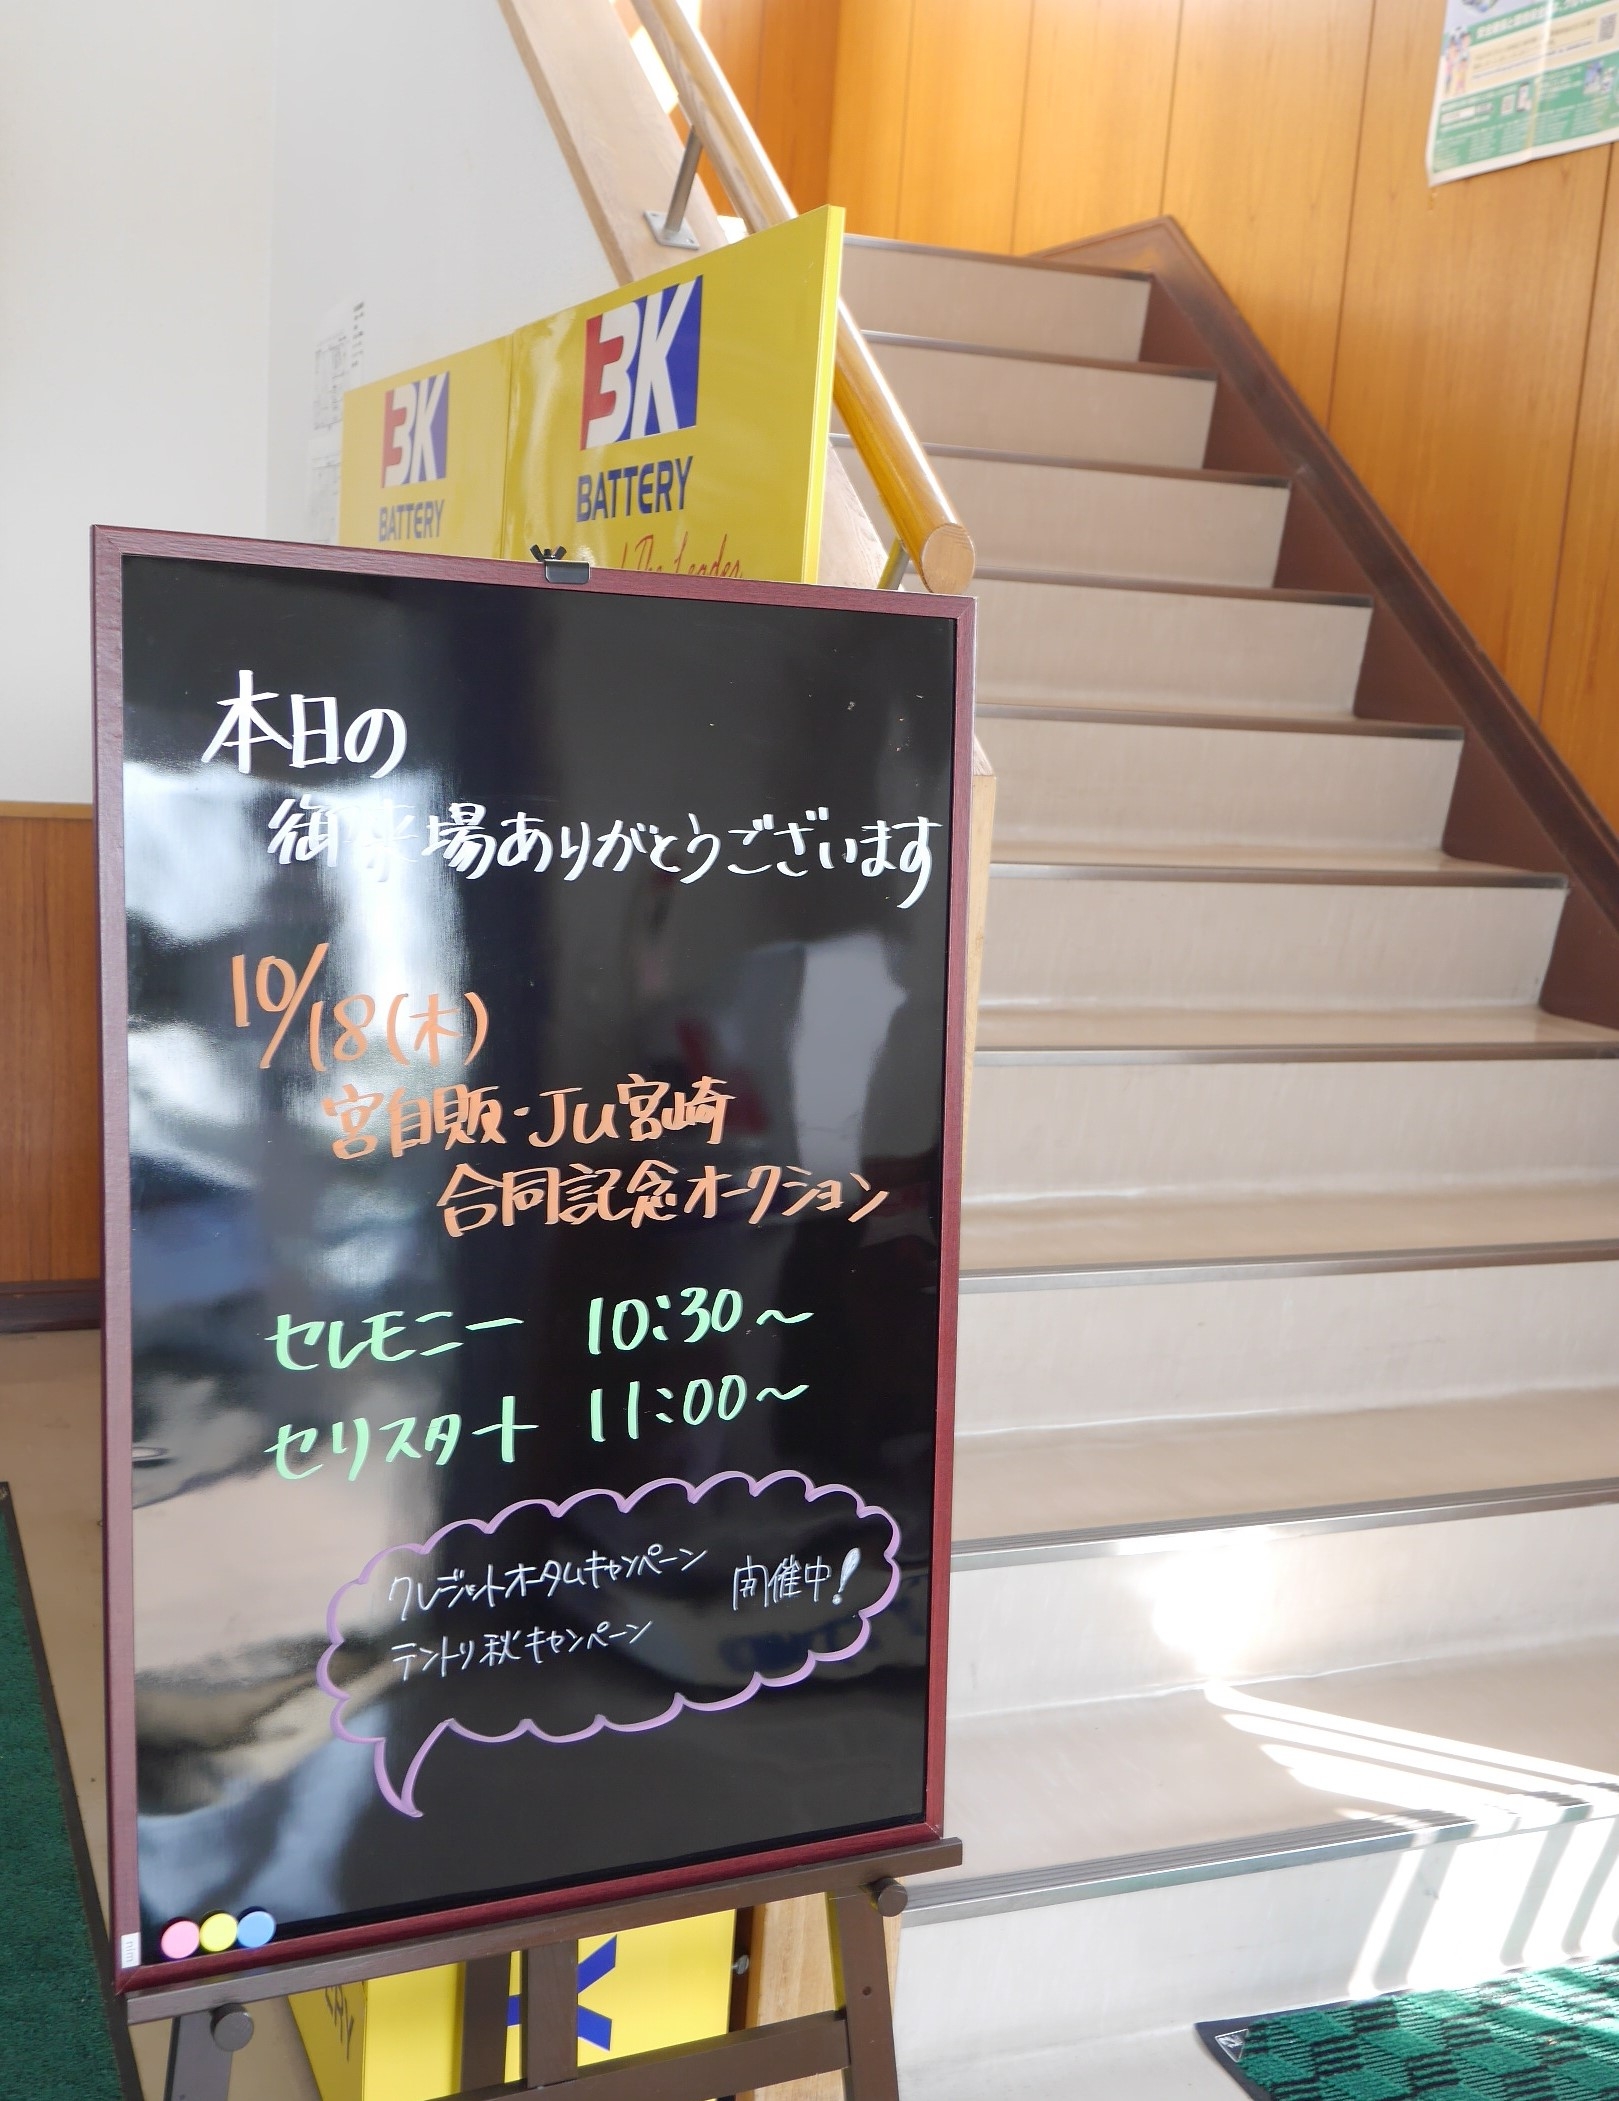 3K
BATTERY
3K
BATTERY
The Leader
本日の
御来場ありがとうございます
10/18(木)
宮自販-JU宮崎
合同記念オークション
セレモニー 10:30～
セリスタート 11:00～
クレジットオータムキャンペーン 開催中!
テントリ秋キャンペーン
nim